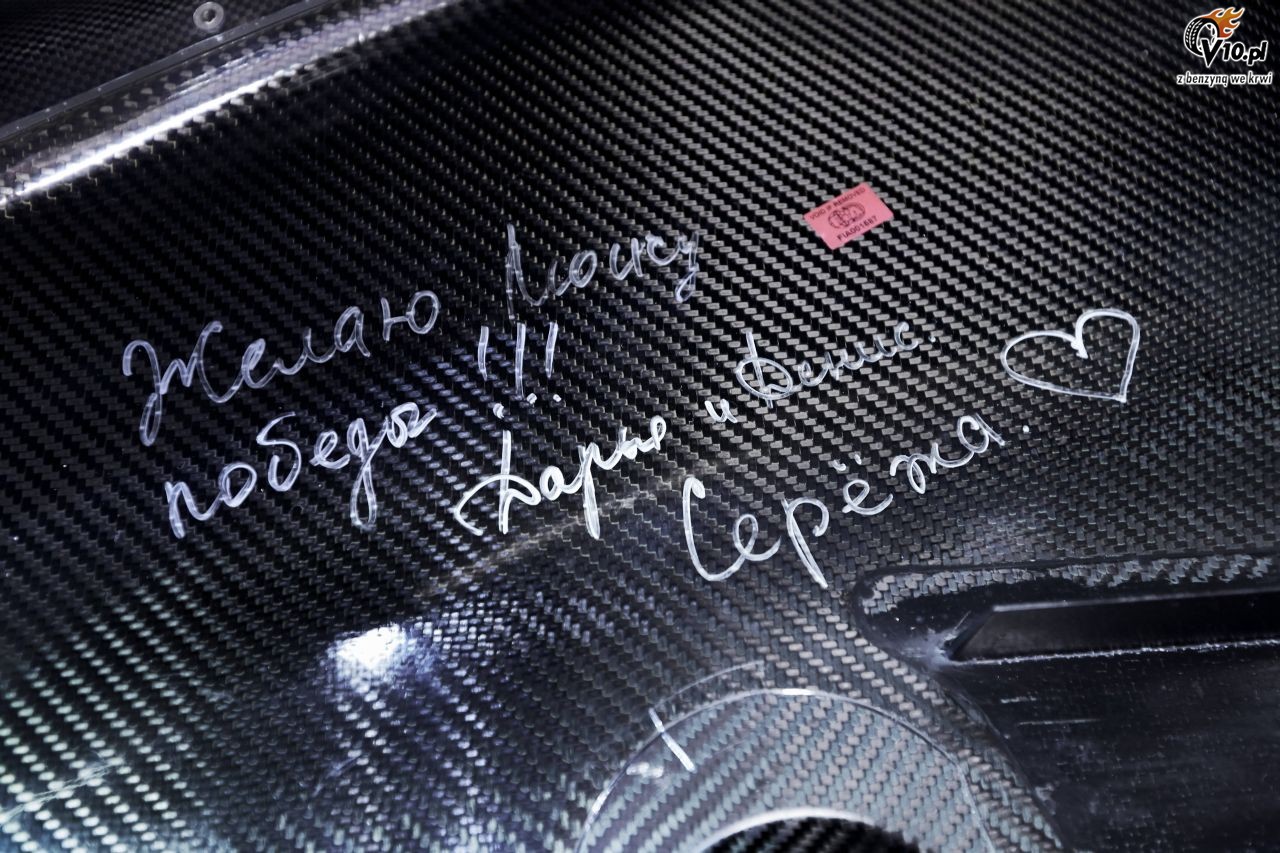 V10.pl
z benzyną we krwi
VOID IF REMOVED
FIA001687
Желаю
победы!!!
Дарья и Денис.
Серёжа.